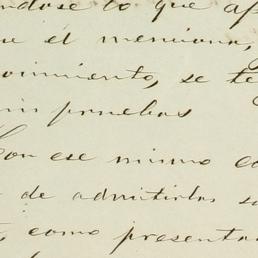 ndose lo que ap
ue él menciona,
ovimiento, se te
mis pruebas
Con ese mismo co
de admitirlas s
como presenta